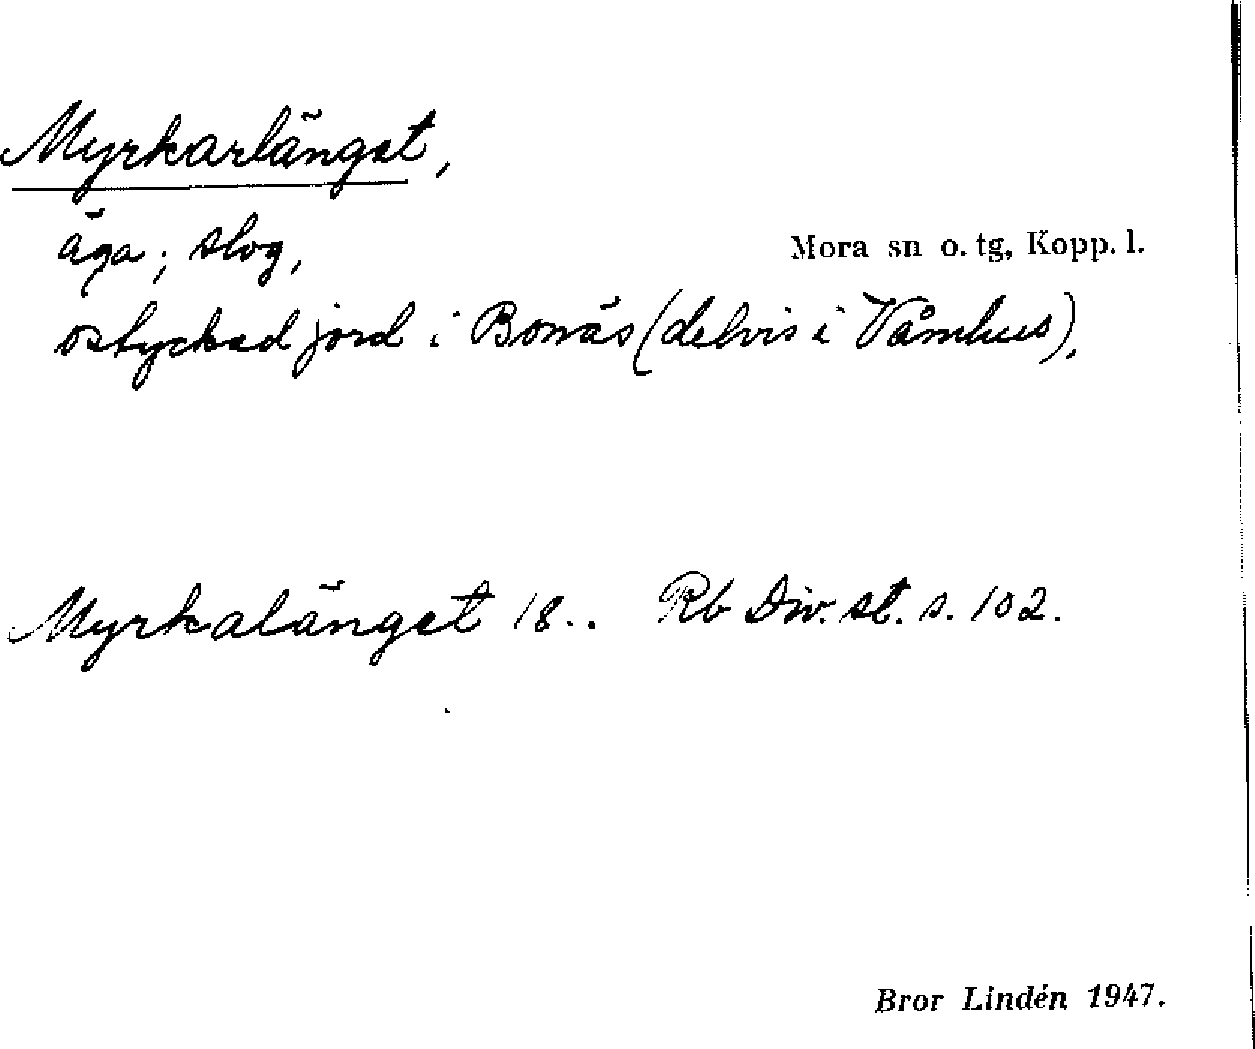 Myrkarlängst,
äga; slog,
Mora sn o. tg, Kopp. l.
ostyckad jord i Bonäs (delvis i Våmhus),
Myrkalängst 18.. Rb Div. st. s. 102.
Bror Lindén 1947.